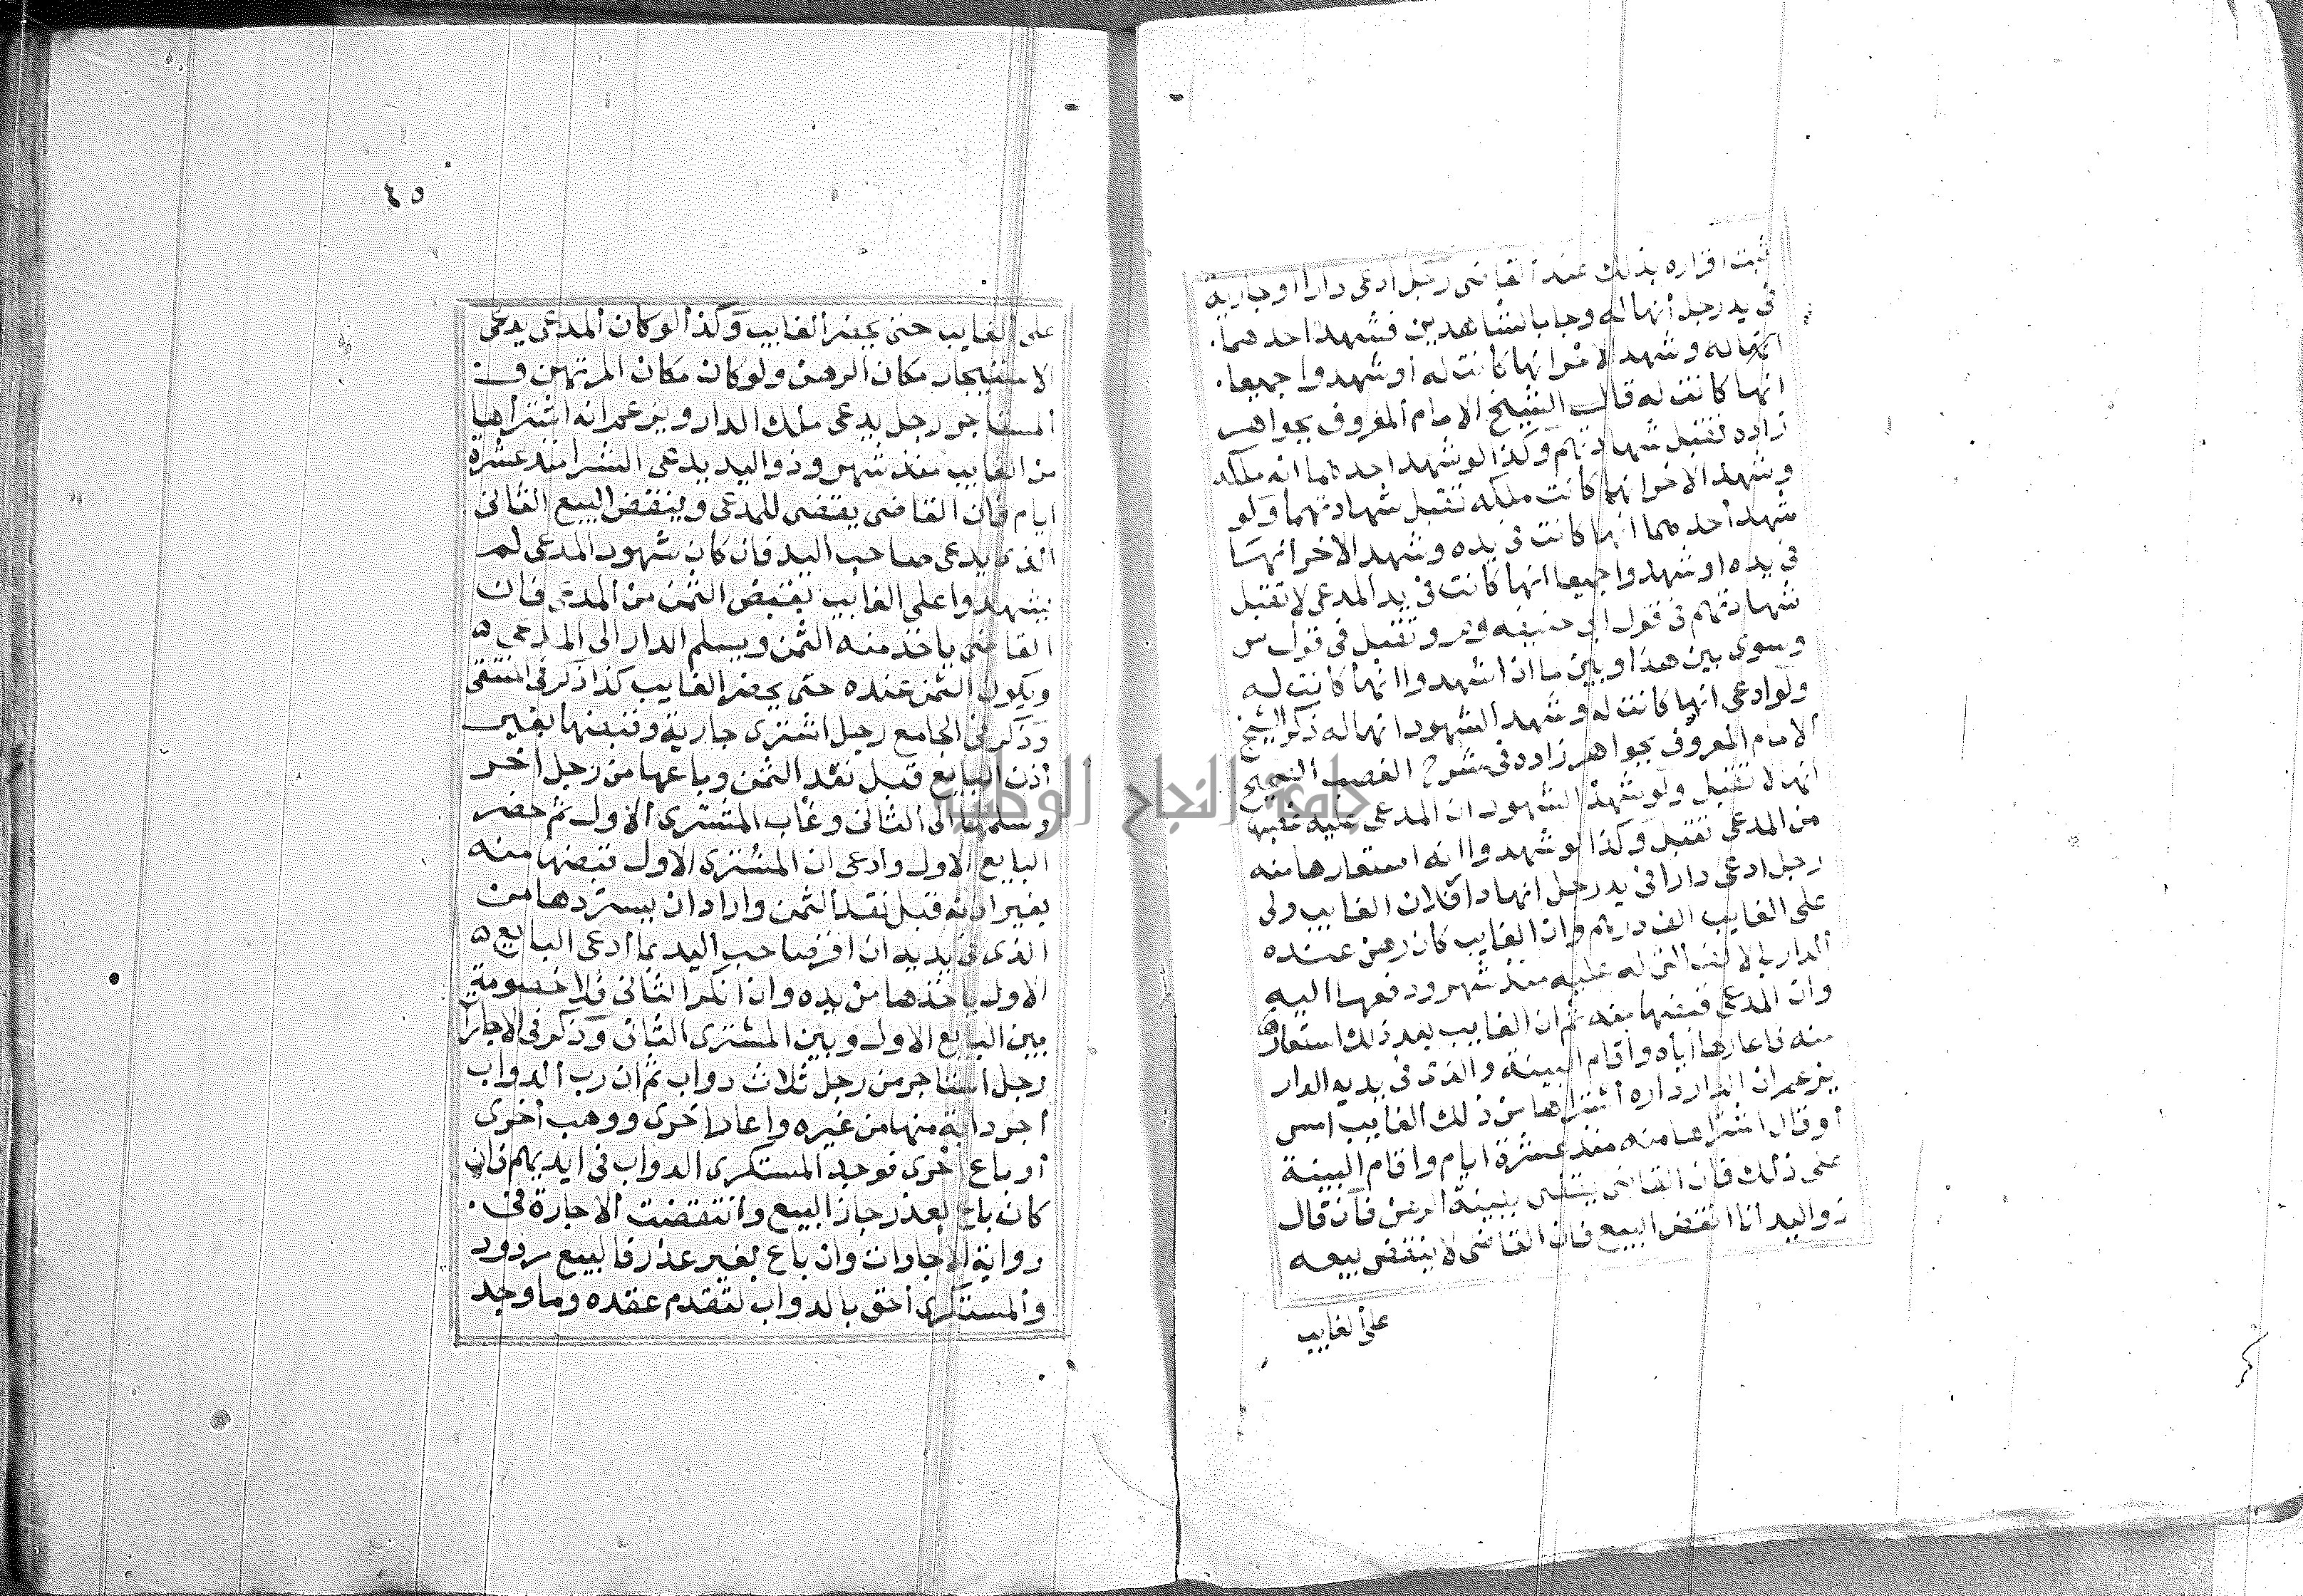 ثبت اقراره بذلك عند القاضى رجل ادعى دارا او جارية
فى يد رجل انها له وجا بالشاهدين فشهد احدهما
انها له وشهد الاخر انها كانت له او شهدوا جميعا
انها كانت له قال الشيخ الامام المعروف بجواهر
زاده تقبل شهادتهم وكذا لو شهد احدهما انه ملكه
وشهد الاخر انها كانت ملكه تقبل شهادتهما ولو
شهد احدهما انها كانت فى يده وشهد الاخر انها
فى يده او شهدوا جميعا انها كانت فى يد المدعى لا تقبل
شهادتهم فى قول ابى حنيفه وتقبل فى قول س
وسوى بين هذا وبين ما اذا شهدوا انها كانت له
ولو ادعى انها كانت له وشهد الشهود انها له ذكر الشيخ
الامام المعروف بجواهر زاده فى شرح الغصب الصحيح
انه لا تقبل ولو شهد الشهود ان المدعى عليه غصبها
من المدعى تقبل وكذا لو شهدوا انه استعارها منه
رجل ادعى دارا فى يد رجل انها دار فلان الغايب ولى
على الغايب الف درهم وان الغايب كان رهن عنده
الدار بالالف التى له عليه منذ شهر ودفعها اليه
وان المدعى قبضها منه ثم ان الغايب بعد ذلك استعار
منه فاعارها اياه واقام البينة والذى فى يديه الدار
يزعم ان الدار داره اشتراها من ذلك الغايب امس
او قال اشتراها منه منذ عشرة ايام واقام البينة
على ذلك فان القاضى يقضى ببينة الرهن فان قال
ذو اليد انا انقض البيع فان القاضى لا ينقض بيعه
على الغايب
٤٥
على الغايب حتى يحضر الغايب وكذا لو كان المدعى يدعى
الاستيجار مكان الرهن ولو كان مكان المرتهن و
المستاجر رجل يدعى ملك الدار ويزعم انه اشتراها
من الغايب منذ شهر وذو اليد يدعى الشرا منذ عشرة
ايام فان القاضى يقضى للمدعى وينقض البيع الثانى
الذى يدعى صاحب اليد فان كان شهود المدعى لم
يشهدوا على الغايب بقبض الثمن من المدعى فان
القاضى ياخذ منه الثمن ويسلم الدار الى المدعى ه
ويكون الثمن عنده حتى يحضر الغايب كذا ذكر فى المنتقى
وذكر فى الجامع رجل اشترى جارية وقبضها بغير
اذن البايع قبل نقد الثمن وباعها من رجل اخر
وسلمها الى الثانى وغاب المشترى الاول ثم حضر
البايع الاول وادعى ان المشترى الاول قبضها منه
بغير اذنه قبل نقد الثمن واراد ان يستردها من
الذى فى يديه ان اقر صاحب اليد بما ادعى البايع ه
الاول ياخذها من يده وان انكر الثانى فلا خصومة
بين البايع الاول وبين المشترى الثانى وذكر فى الاجارات
رجل استاجر من رجل ثلاث دواب ثم ان رب الدواب
اجر دابة منها من غيره واعار اخرى ووهب اخرى
او باع اخرى فوجد المستكرى الدواب فى ايديهم فان
كان باع بعذر جاز البيع وانتقضت الاجارة فى
رواية الاجارات وان باع بغير عذر فالبيع مردود
والمستكرى احق بالدواب لتقدم عقده وما وجد
جامعة النجاح الوطنية